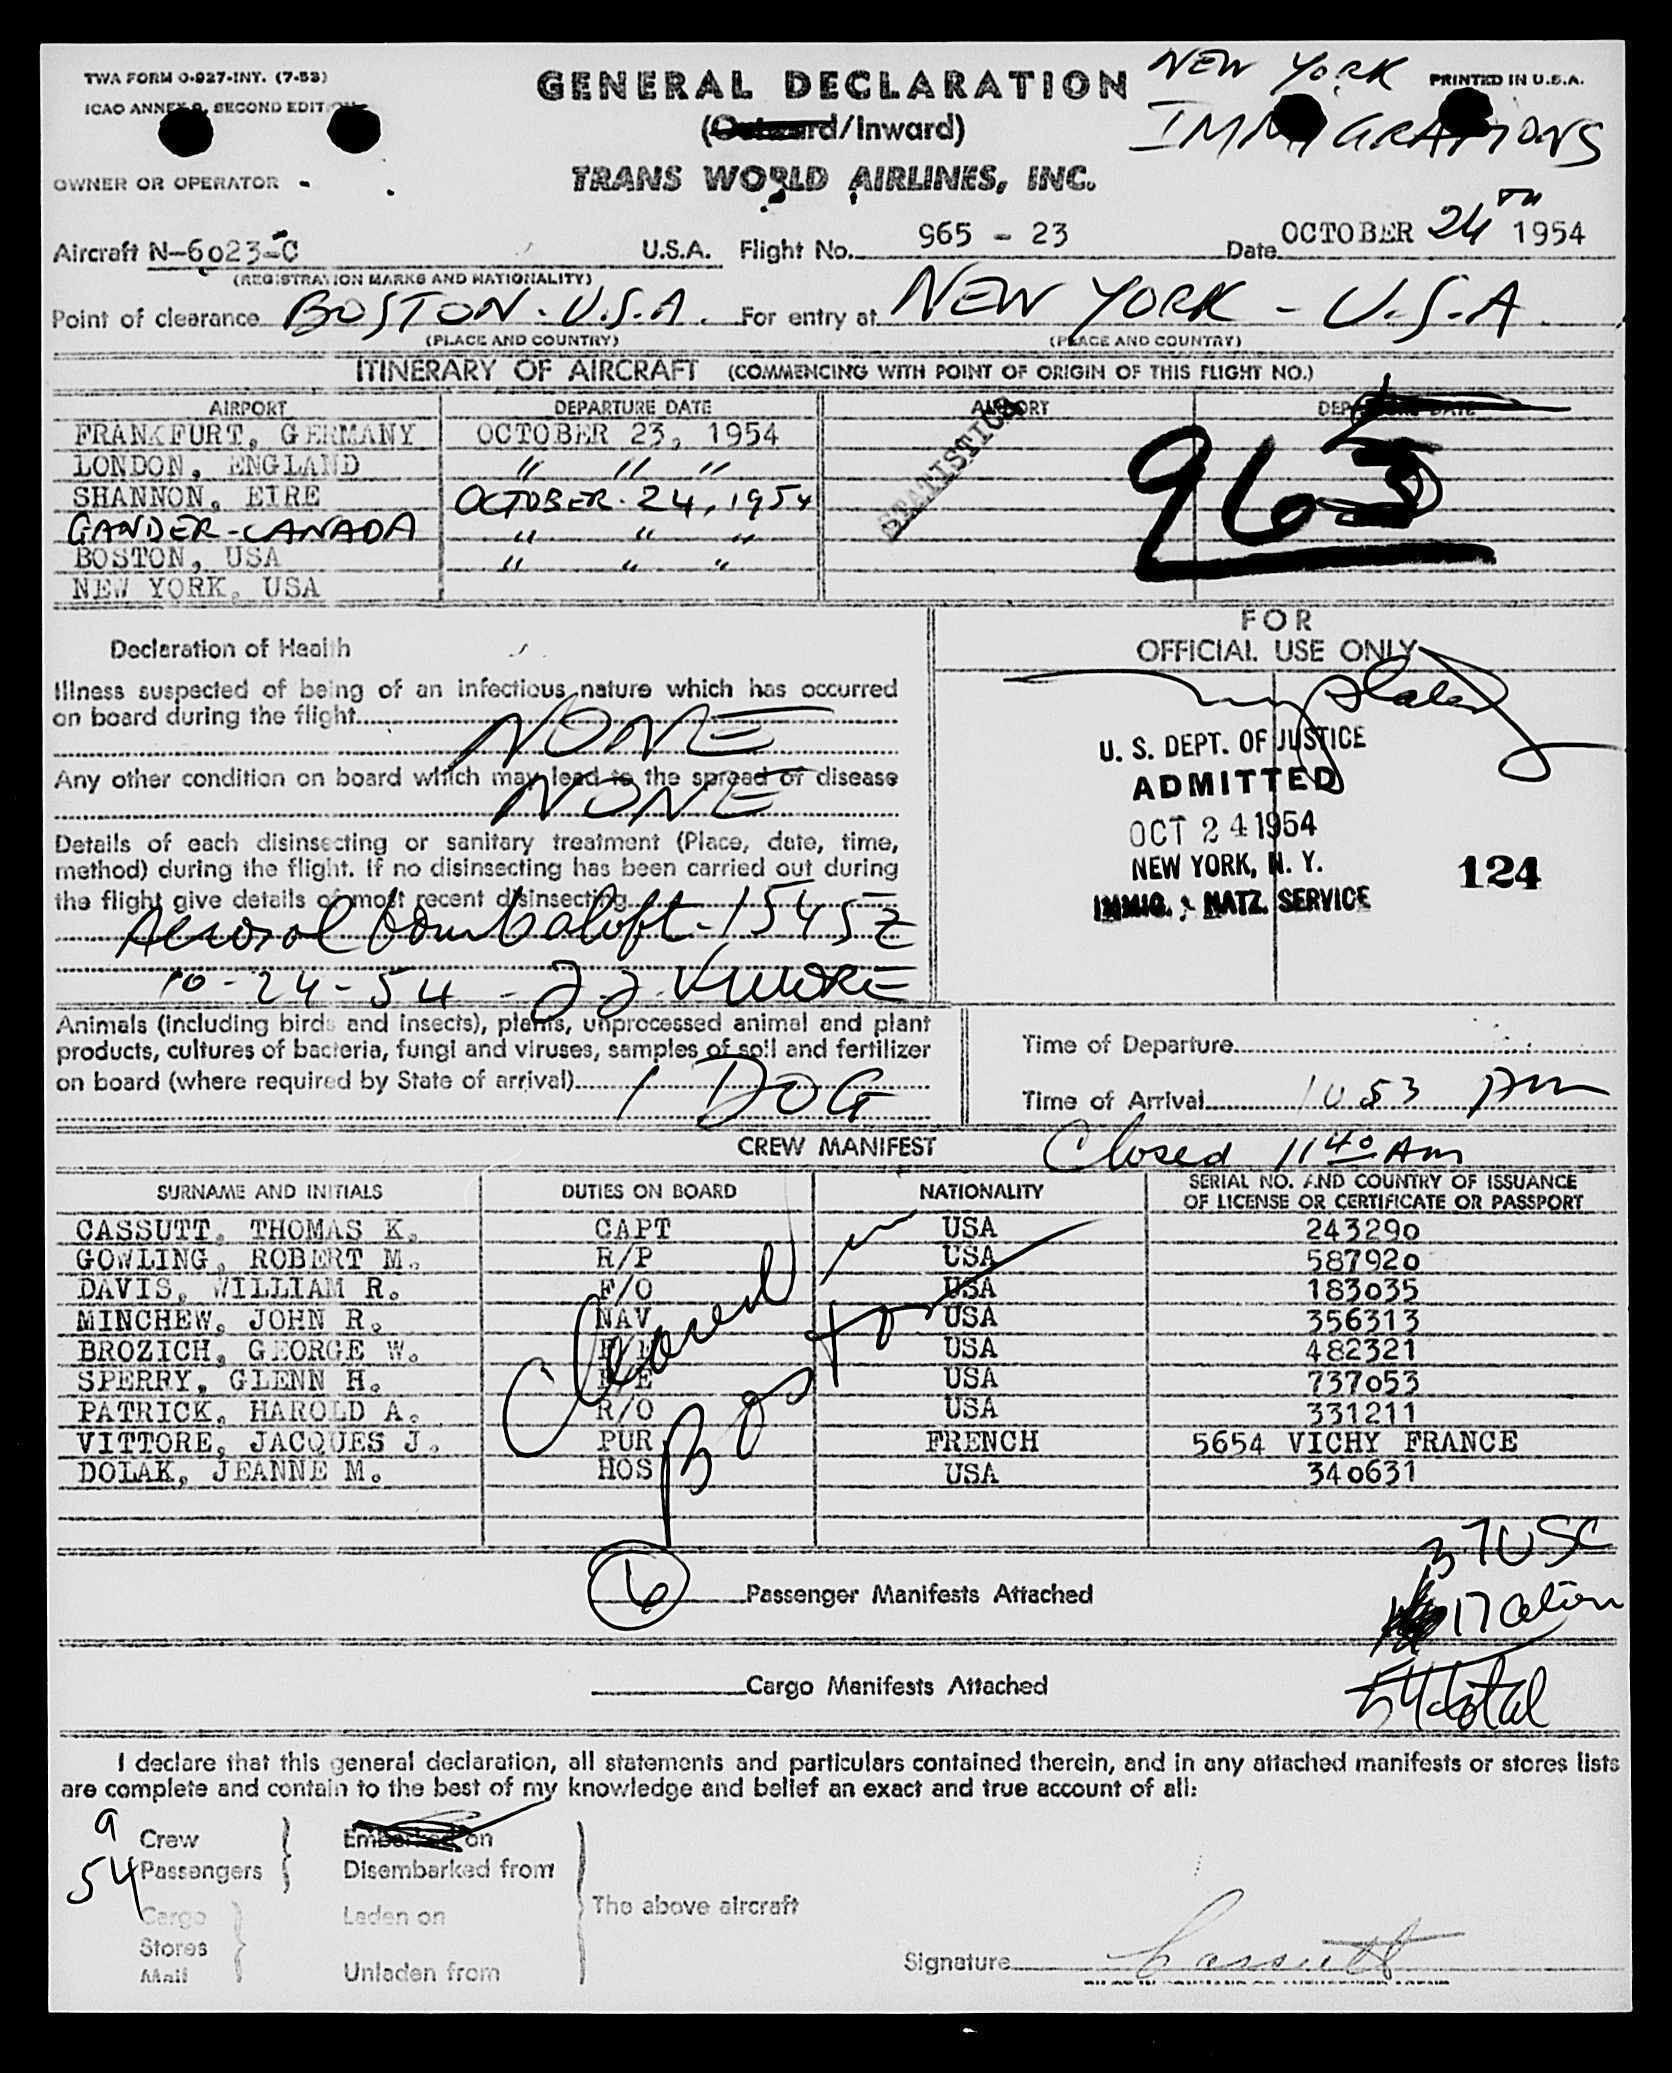 TWA FORM O-927-INT. (7-53)
ICAO ANNEX 9, SECOND EDITION
GENERAL DECLARATION
(Outward/Inward)
NEW YORK
IMMIGRATIONS
PRINTED IN U.S.A.
OWNER OR OPERATOR -
TRANS WORLD AIRLINES, INC.
Aircraft N-6023-C U.S.A. Flight No. 965 - 23 Date OCTOBER 24TH 1954
(REGISTRATION MARKS AND NATIONALITY)
Point of clearance BOSTON. U.S.A. For entry at NEW YORK - U.S.A
(PLACE AND COUNTRY) (PLACE AND COUNTRY)
ITINERARY OF AIRCRAFT (COMMENCING WITH POINT OF ORIGIN OF THIS FLIGHT NO.)
AIRPORT DEPARTURE DATE AIRPORT DEPARTURE DATE
FRANKFURT, GERMANY OCTOBER 23, 1954
LONDON, ENGLAND " " "
SHANNON, EIRE OCTOBER. 24, 1954
GANDER-CANADA " " "
BOSTON, USA " " "
NEW YORK, USA
STATISTICS
Declaration of Health
Illness suspected of being of an infectious nature which has occurred
on board during the flight NONE
Any other condition on board which may lead to the spread of disease
NONE
Details of each disinsecting or sanitary treatment (Place, date, time,
method) during the flight. If no disinsecting has been carried out during
the flight give details of most recent disinsecting
Aerosol bomb aloft - 1545Z
10-24-54 - J.J. VITTORE
FOR
OFFICIAL USE ONLY
U. S. DEPT. OF JUSTICE
ADMITTED
OCT 24 1954
NEW YORK, N. Y.
IMMIG. & NATZ. SERVICE
124
Animals (including birds and insects), plants, unprocessed animal and plant
products, cultures of bacteria, fungi and viruses, samples of soil and fertilizer
on board (where required by State of arrival) 1 DOG
Time of Departure
Time of Arrival 10 53 AM
Closed 11 40 AM
CREW MANIFEST
SURNAME AND INITIALS DUTIES ON BOARD NATIONALITY SERIAL NO. AND COUNTRY OF ISSUANCE
OF LICENSE OR CERTIFICATE OR PASSPORT
CASSUTT, THOMAS K. CAPT USA 243290
GOWLING, ROBERT M. R/P USA 587920
DAVIS, WILLIAM R. F/O USA 183035
MINCHEW, JOHN R. NAV USA 356313
BROZICH, GEORGE W. USA 482321
SPERRY, GLENN H. F/E USA 737053
PATRICK, HAROLD A. R/O USA 331211
VITTORE, JACQUES J. PUR FRENCH 5654 VICHY FRANCE
DOLAK, JEANNE M. HOS USA 340631
Cleared in
Boston
6 Passenger Manifests Attached
37 USC
17 alien
54 total
Cargo Manifests Attached
I declare that this general declaration, all statements and particulars contained therein, and in any attached manifests or stores lists
are complete and contain to the best of my knowledge and belief an exact and true account of all:
9 Crew Embarked on
54 Passengers Disembarked from
Cargo Laden on
The above aircraft
Stores
Mail Unladen from
Signature Cassutt
PILOT IN COMMAND OR AUTHORIZED AGENT